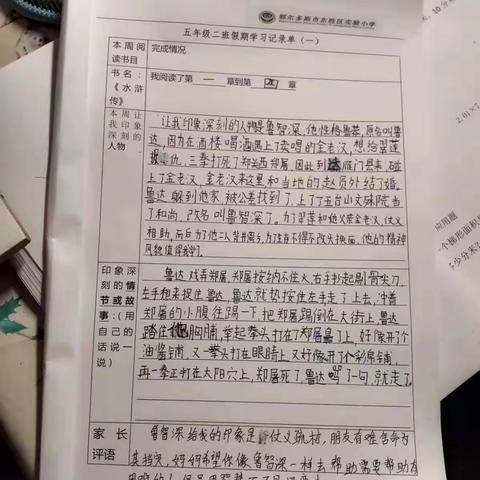 鄂尔多斯市东胜区实验小学
五年级二班假期学习记录单（一）
本周阅读书目
完成情况
书名：《水浒传》
我阅读了第一章到第五章
本周让我印象深刻的人物
让我印象深刻的人物是鲁智深，他性格鲁莽，原名叫鲁
达，因为在酒楼喝酒遇上了卖唱的金老汉，想给翠莲
报仇，三拳打死了郑关西郑屠，因此到 雁门县来，碰
上了金老汉，金老汉来这里和当地的赵员外结了婚，
鲁达 躲到他家，被公差找到了，上了了五台山文殊院当
了和尚，改名叫鲁智深了。为了翠莲和他父亲金老汉，仗义
相助，而后为了他二人背井离乡，为了生存不得不改头换面，他的精神
风貌值得我学习。
印象深刻的情节或故事：（用自己的话说一说）
鲁达 戏弄郑屠，郑屠按纳不住，右手抄起剔骨尖刀，
左手和来捉住鲁达，鲁达就势按住左手走了上去，冲着
郑屠的小腹往踢一下，把郑屠踢倒在大街上，鲁达
踏住他胸脯，举起拳头打在了郑屠鼻子上，好像开了个
油酱铺，又一拳头打在眼睛上，又好像开了个彩帛铺，
再一拳正打在太阳穴上，郑屠死了，鲁达骂了一句，就走了。
家长评语
鲁智深给我的印象是 仗义疏财，朋友有难舍命为
其挡灾，妈妈希望你像鲁智深一样去帮助需要帮助有
应用题
一个梯形面积
5少分米